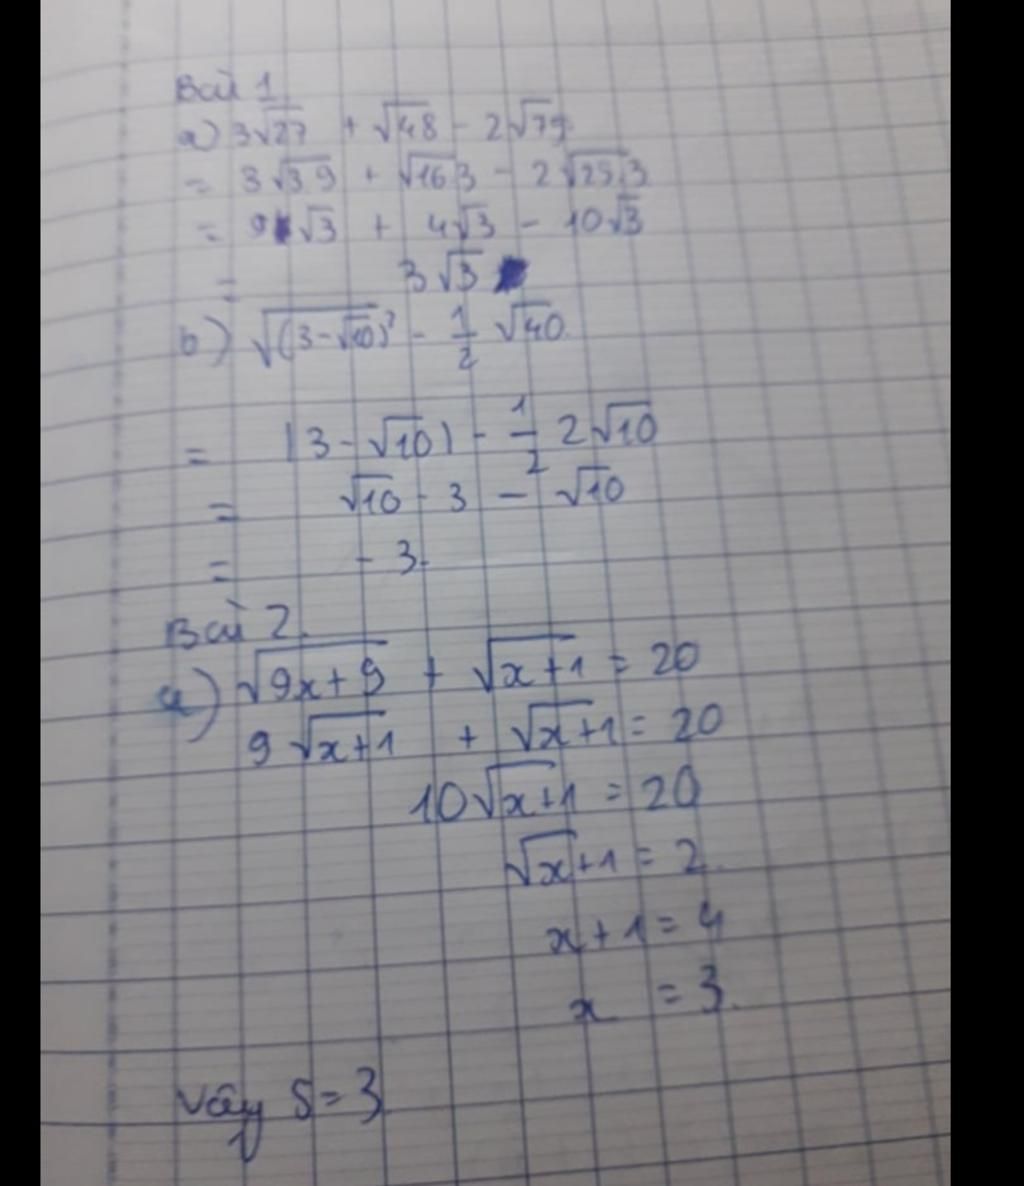 Bài 1
a) 3√27 + √48 - 2√75
= 3√3 9 + √16 3 - 2√25 3
= 9√3 + 4√3 - 10√3
= 3√3
b) √(3-√10)² - 1/2 √40
= |3-√10| - 1/2 2√10
= √10 - 3 - √10
= -3
Bài 2.
a) √9x+9 + √x+1 = 20
9√x+1 + √x+1 = 20
10√x+1 = 20
√x+1 = 2
x+1 = 4
x = 3.
Vậy S=3